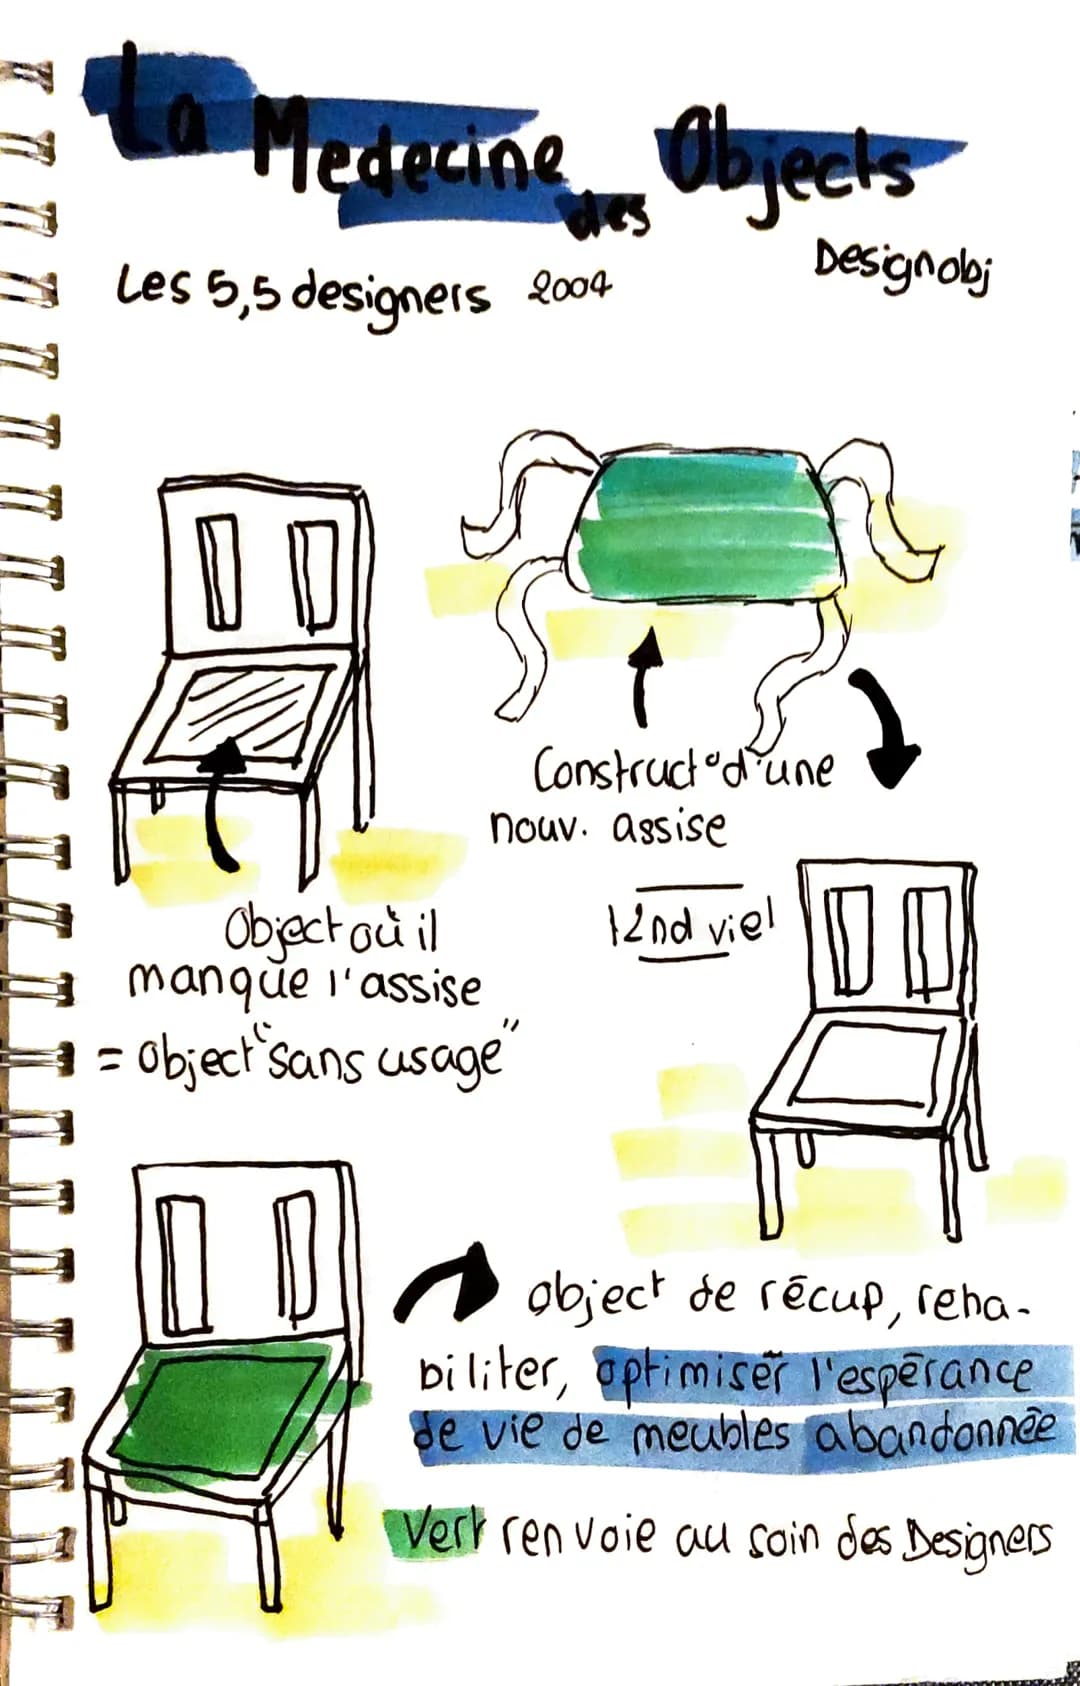 La Medecine des Objects
Les 5,5 designers 2004
Designobj
Construct° d'une
nouv. assise
Object où il
manque l'assise
= object "sans usage"
12nd vie!
object de récup, reha-
biliter, optimiser l'espérance
de vie de meubles abandonnée
Vert renvoie au soin des Designers